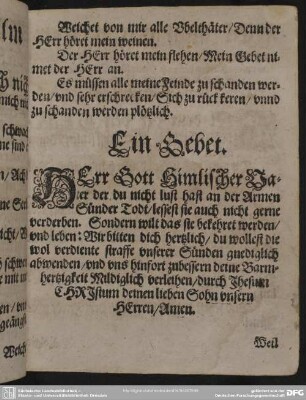 Weichet von mir alle Vbelthäter/Denn der
HErr höret mein weinen.
Der HErr höret mein flehen/Mein Gebet ni
met der HErr an.
Es müssen alle meine Feinde zu schanden wer-
den/vnd sehr erschrecken/Sich zu rück keren/vnnd
zu schanden werden plötzlich.
Ein Gebet.
HErr Gott Himlischer Va-
ter der du nicht lust hast an der Armen
Sünder Todt/lessest sie auch nicht gerne
verderben. Sondern wilt das sie bekehret werden/
vnd leben: Wir bitten dich hertzlich/du wollest die
wol verdiente straffe vnserer Sünden gnediglich
abwenden/vnd vns hinfort zubessern deine Barm-
hertzigkeit Mildiglich verleihen/durch Jhesum
CHRIstum deinen lieben Sohn vnsern
HErren/Amen.
Weil